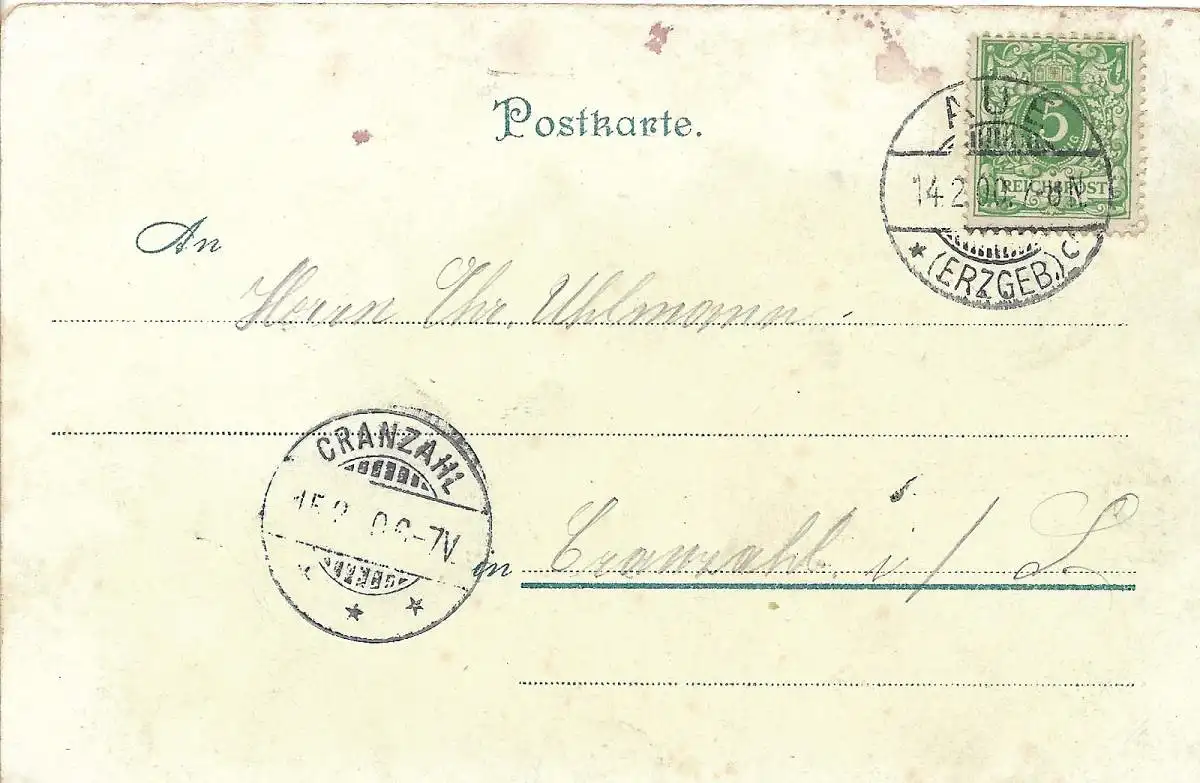 Postkarte.
5
REICHSPOST
AUE
14.2.00. 7-8N.
* (ERZGEB.) C
An
Herrn Chr. Uhlmann.
CRANZAHL
15.2 00 -7V.
in Cranzahl. i/S